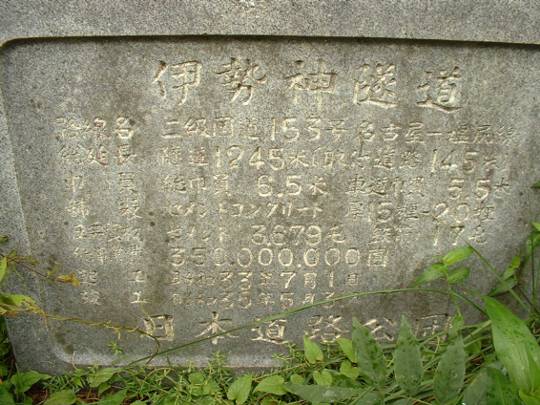 伊勢神隧道
路線名 二級国道153号名古屋-塩尻線
総延長 隧道1245米 取付道路145米
巾員 総巾員 6.5米 車道巾員 5.5米
舗装 セメントコンクリート 厚15糎-20糎
セメント 3.679屯 17屯
350.000.000円
昭和33年7月1日
工 昭和35年5月
日本道路公団